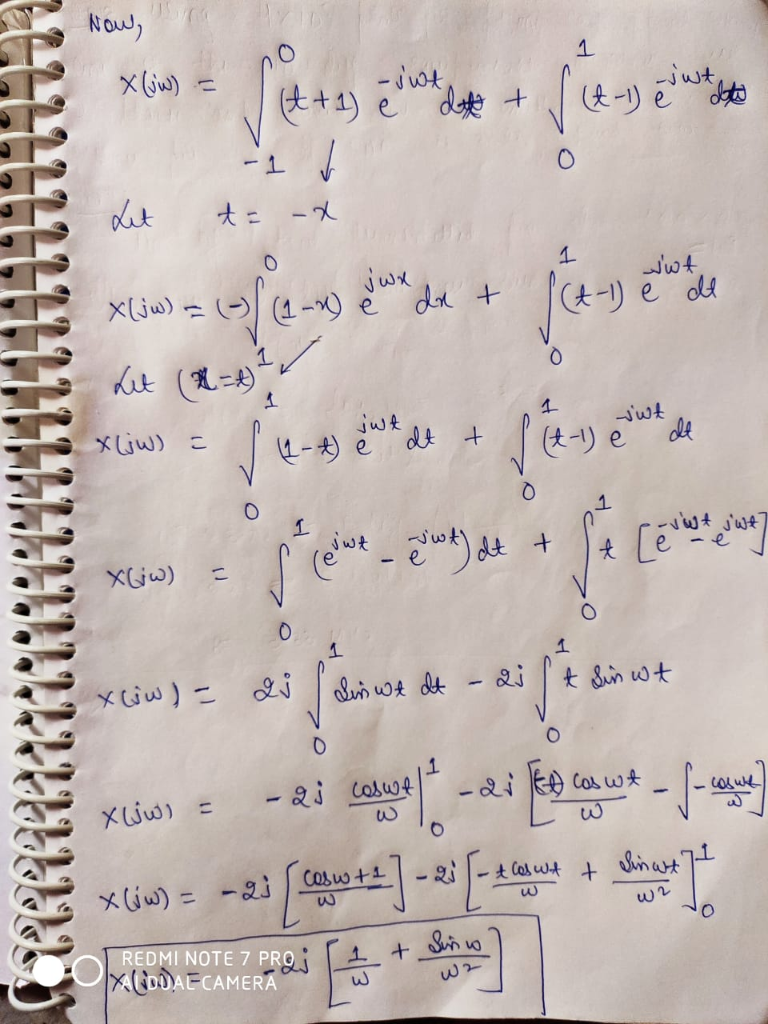 Now,
X(jω) = ∫_{-1}^{0} (t+1) e^{-jωt} dt + ∫_{0}^{1} (t-1) e^{-jωt} dt
Let t = -x
X(jω) = (-)∫_{1}^{0} (1-x) e^{jωx} dx + ∫_{0}^{1} (t-1) e^{-jωt} dt
Let (x=t)
X(jω) = ∫_{0}^{1} (1-t) e^{jωt} dt + ∫_{0}^{1} (t-1) e^{-jωt} dt
X(jω) = ∫_{0}^{1} (e^{jωt} - e^{-jωt}) dt + ∫_{0}^{1} t [e^{-jωt} - e^{jωt}]
X(jω) = 2j ∫_{0}^{1} Sin ωt dt - 2j ∫_{0}^{1} t Sin ωt
X(jω) = -2j cosωt/ω |_{0}^{1} - 2j [(-t) cosωt/ω - ∫ -cosωt/ω]
X(jω) = -2j [cosω+1/ω] - 2j [-t cosωt/ω + Sinωt/ω²]_{0}^{1}
X(jω) = -2j [1/ω + Sinω/ω²]
REDMI NOTE 7 PRO
AI DUAL CAMERA